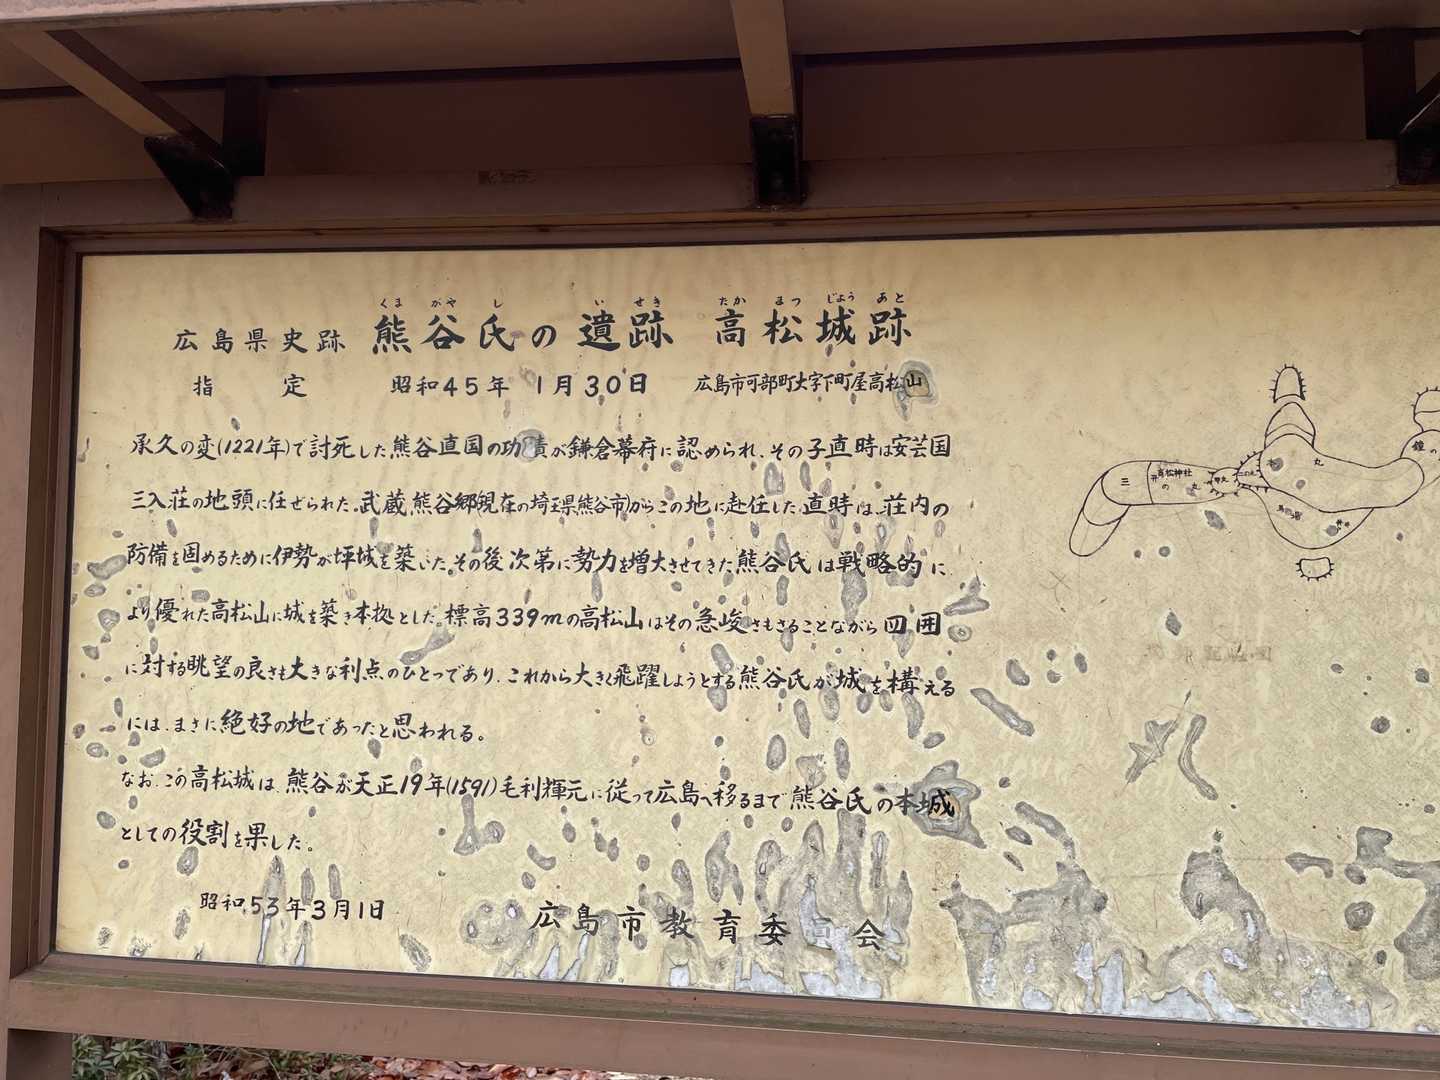 くま がや し い せき たか まつ じょう あと
広島県史跡 熊谷氏の遺跡 高松城跡
指 定 昭和45年 1月30日 広島市可部町大字下町屋高松山
承久の変(1221年)で討死した熊谷直国の功績が鎌倉幕府に認められ、その子直時は安芸国
三入荘の地頭に任ぜられた。武蔵熊谷郷現在の埼玉県熊谷市)からこの地に赴任した直時は、荘内の
防備を固めるために伊勢が坪城を築いた。その後次第に勢力を増大させてきた熊谷氏は戦略的に
より優れた高松山に城を築き本拠とした。標高339mの高松山はその急峻さもさることながら四囲
に対する眺望の良さも大きな利点のひとつであり、これから大きく飛躍しようとする熊谷氏が城を構える
には、まさに絶好の地であったと思われる。
なお、この高松城は、熊谷が天正19年(1591)毛利輝元に従って広島へ移るまで熊谷氏の本城
としての役割を果した。
昭和53年3月1日 広島市教育委員会
三 の 丸
高松神社
二の丸
本 丸
鐘の